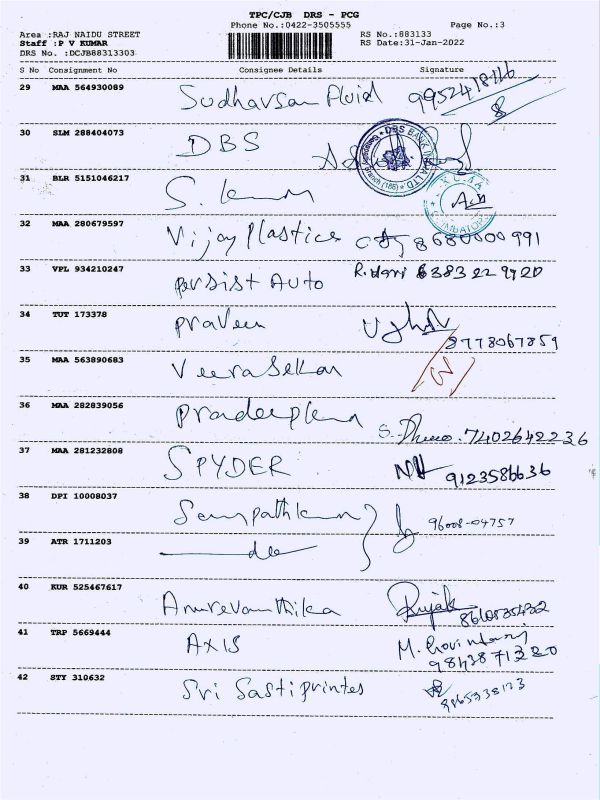 TPC/CJB DRS - PCG
Phone No.:0422-3505555 Page No.:3
Area :RAJ NAIDU STREET RS No.:883133
Staff :P V KUMAR RS Date:31-Jan-2022
DRS No. :DCJB88313303
S No Consignment No Consignee Details Signature
29 MAA 564930089 Sudharsan Fluid
30 SLM 288404073 DBS
DBS BANK INDIA LTD
31 BLR 5151046217 S.
32 MAA 280679597 Vijay Plastics 8680000991
33 VPL 934210247 Persist Auto R. Hari 6383229720
34 TUT 173378 Praveen
8778067859
35 MAA 563890683 Veerasekar
36 MAA 282839056 Pradeep
S. 7402642236
37 MAA 281232808 SPYDER 9123586636
38 DPI 10008037 96008-04757
39 ATR 1711203 do
40 KUR 525467617
41 TRP 5669444 AXIS M. Govindaraj
9843871320
42 STY 310632 Sri Sasti printes